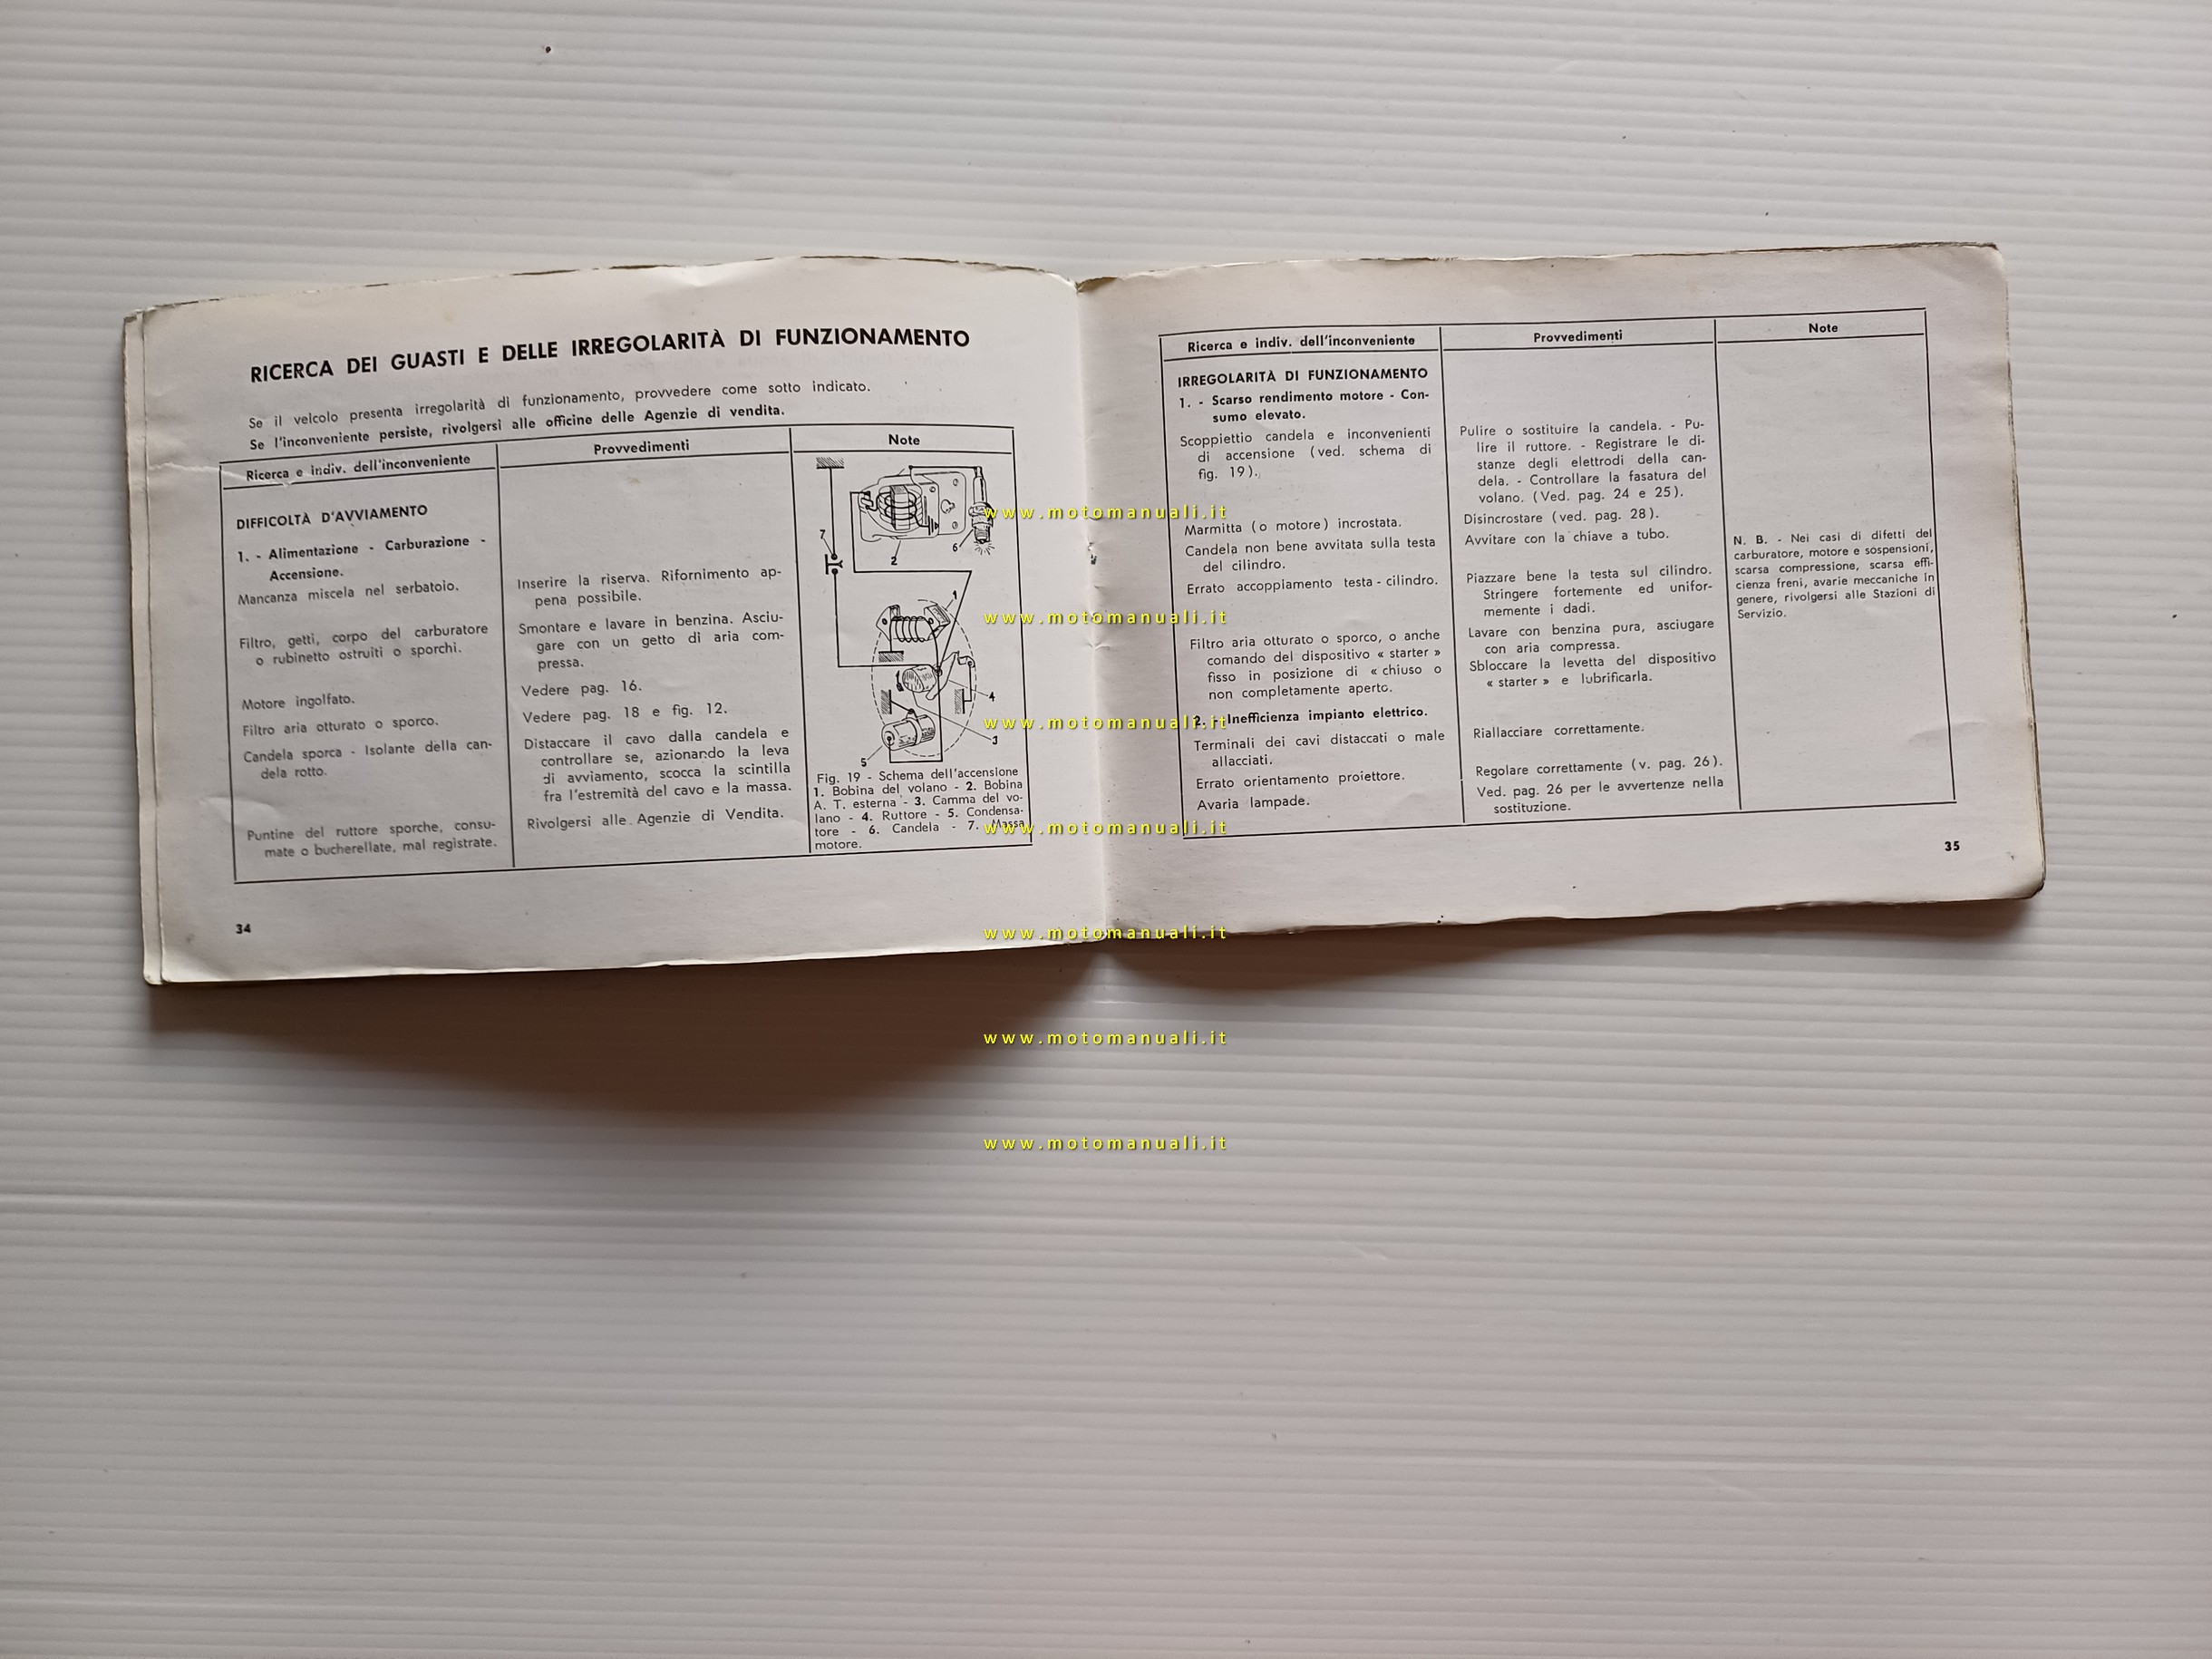 RICERCA DEI GUASTI E DELLE IRREGOLARITÀ DI FUNZIONAMENTO
Se il veicolo presenta irregolarità di funzionamento, provvedere come sotto indicato.
Se l'inconveniente persiste, rivolgersi alle officine delle Agenzie di vendita.
Ricerca e indiv. dell'inconveniente
Provvedimenti
Note
DIFFICOLTÀ D'AVVIAMENTO
1. - Alimentazione - Carburazione -
Accensione.
Mancanza miscela nel serbatoio.
Inserire la riserva. Rifornimento ap-
pena possibile.
Filtro, getti, corpo del carburatore
o rubinetto ostruiti o sporchi.
Smontare e lavare in benzina. Asciu-
gare con un getto di aria com-
pressa.
Motore ingolfato.
Vedere pag. 16.
Filtro aria otturato o sporco.
Vedere pag. 18 e fig. 12.
Candela sporca - Isolante della can-
dela rotto.
Distaccare il cavo dalla candela e
controllare se, azionando la leva
di avviamento, scocca la scintilla
fra l'estremità del cavo e la massa.
Puntine del ruttore sporche, consu-
mate o bucherellate, mal registrate.
Rivolgersi alle Agenzie di Vendita.
7
2
6
1
4
3
5
Fig. 19 - Schema dell'accensione
1. Bobina del volano - 2. Bobina
A. T. esterna - 3. Camma del vo-
lano - 4. Ruttore - 5. Condensa-
tore - 6. Candela - 7. Massa
motore.
34
Ricerca e indiv. dell'inconveniente
Provvedimenti
Note
IRREGOLARITÀ DI FUNZIONAMENTO
1. - Scarso rendimento motore - Con-
sumo elevato.
Scoppiettio candela e inconvenienti
di accensione (ved. schema di
fig. 19).
Pulire o sostituire la candela. - Pu-
lire il ruttore. - Registrare le di-
stanze degli elettrodi della can-
dela. - Controllare la fasatura del
volano. (Ved. pag. 24 e 25).
Marmitta (o motore) incrostata.
Disincrostare (ved. pag. 28).
Candela non bene avvitata sulla testa
del cilindro.
Avvitare con la chiave a tubo.
Errato accoppiamento testa-cilindro.
Piazzare bene la testa sul cilindro.
Stringere fortemente ed unifor-
memente i dadi.
Filtro aria otturato o sporco, o anche
comando del dispositivo « starter »
fisso in posizione di « chiuso o
non completamente aperto.
Lavare con benzina pura, asciugare
con aria compressa.
Sbloccare la levetta del dispositivo
« starter » e lubrificarla.
2. - Inefficienza impianto elettrico.
Terminali dei cavi distaccati o male
allacciati.
Riallacciare correttamente.
Errato orientamento proiettore.
Regolare correttamente (v. pag. 26).
Avaria lampade.
Ved. pag. 26 per le avvertenze nella
sostituzione.
N. B. - Nei casi di difetti del
carburatore, motore e sospensioni,
scarsa compressione, scarsa effi-
cienza freni, avarie meccaniche in
genere, rivolgersi alle Stazioni di
Servizio.
35
www.motomanuali.it
www.motomanuali.it
www.motomanuali.it
www.motomanuali.it
www.motomanuali.it
www.motomanuali.it
www.motomanuali.it